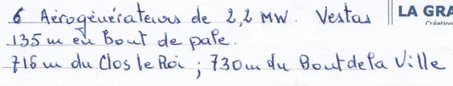 6 Aérogénérateurs de 2,2 MW. Vestas
135 m en Bout de pale.
716 m du Clos le Roi ; 730 m du Bout de la Ville
LA GRA
Création